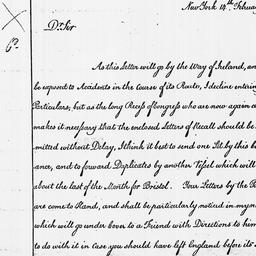 New York 14th Februa
Dr. Sir
As this Letter will go by the Way of Ireland, an
be exposed to Accidents in the Course of its Route, I decline enterin
Particulars; but as the long Recess of Congress who are now again c
makes it necessary that the enclosed Letters of Recall should be
mitted without Delay, I think it best to send one Set by this
ance, and to forward Duplicates by another Vessel which will
about the last of the Month for Bristol. Your Letters by the
are come to Hand, and shall be particularly noticed in my
which will go under Cover to a Friend with Directions to him
to do with it in Case you should have left England before its